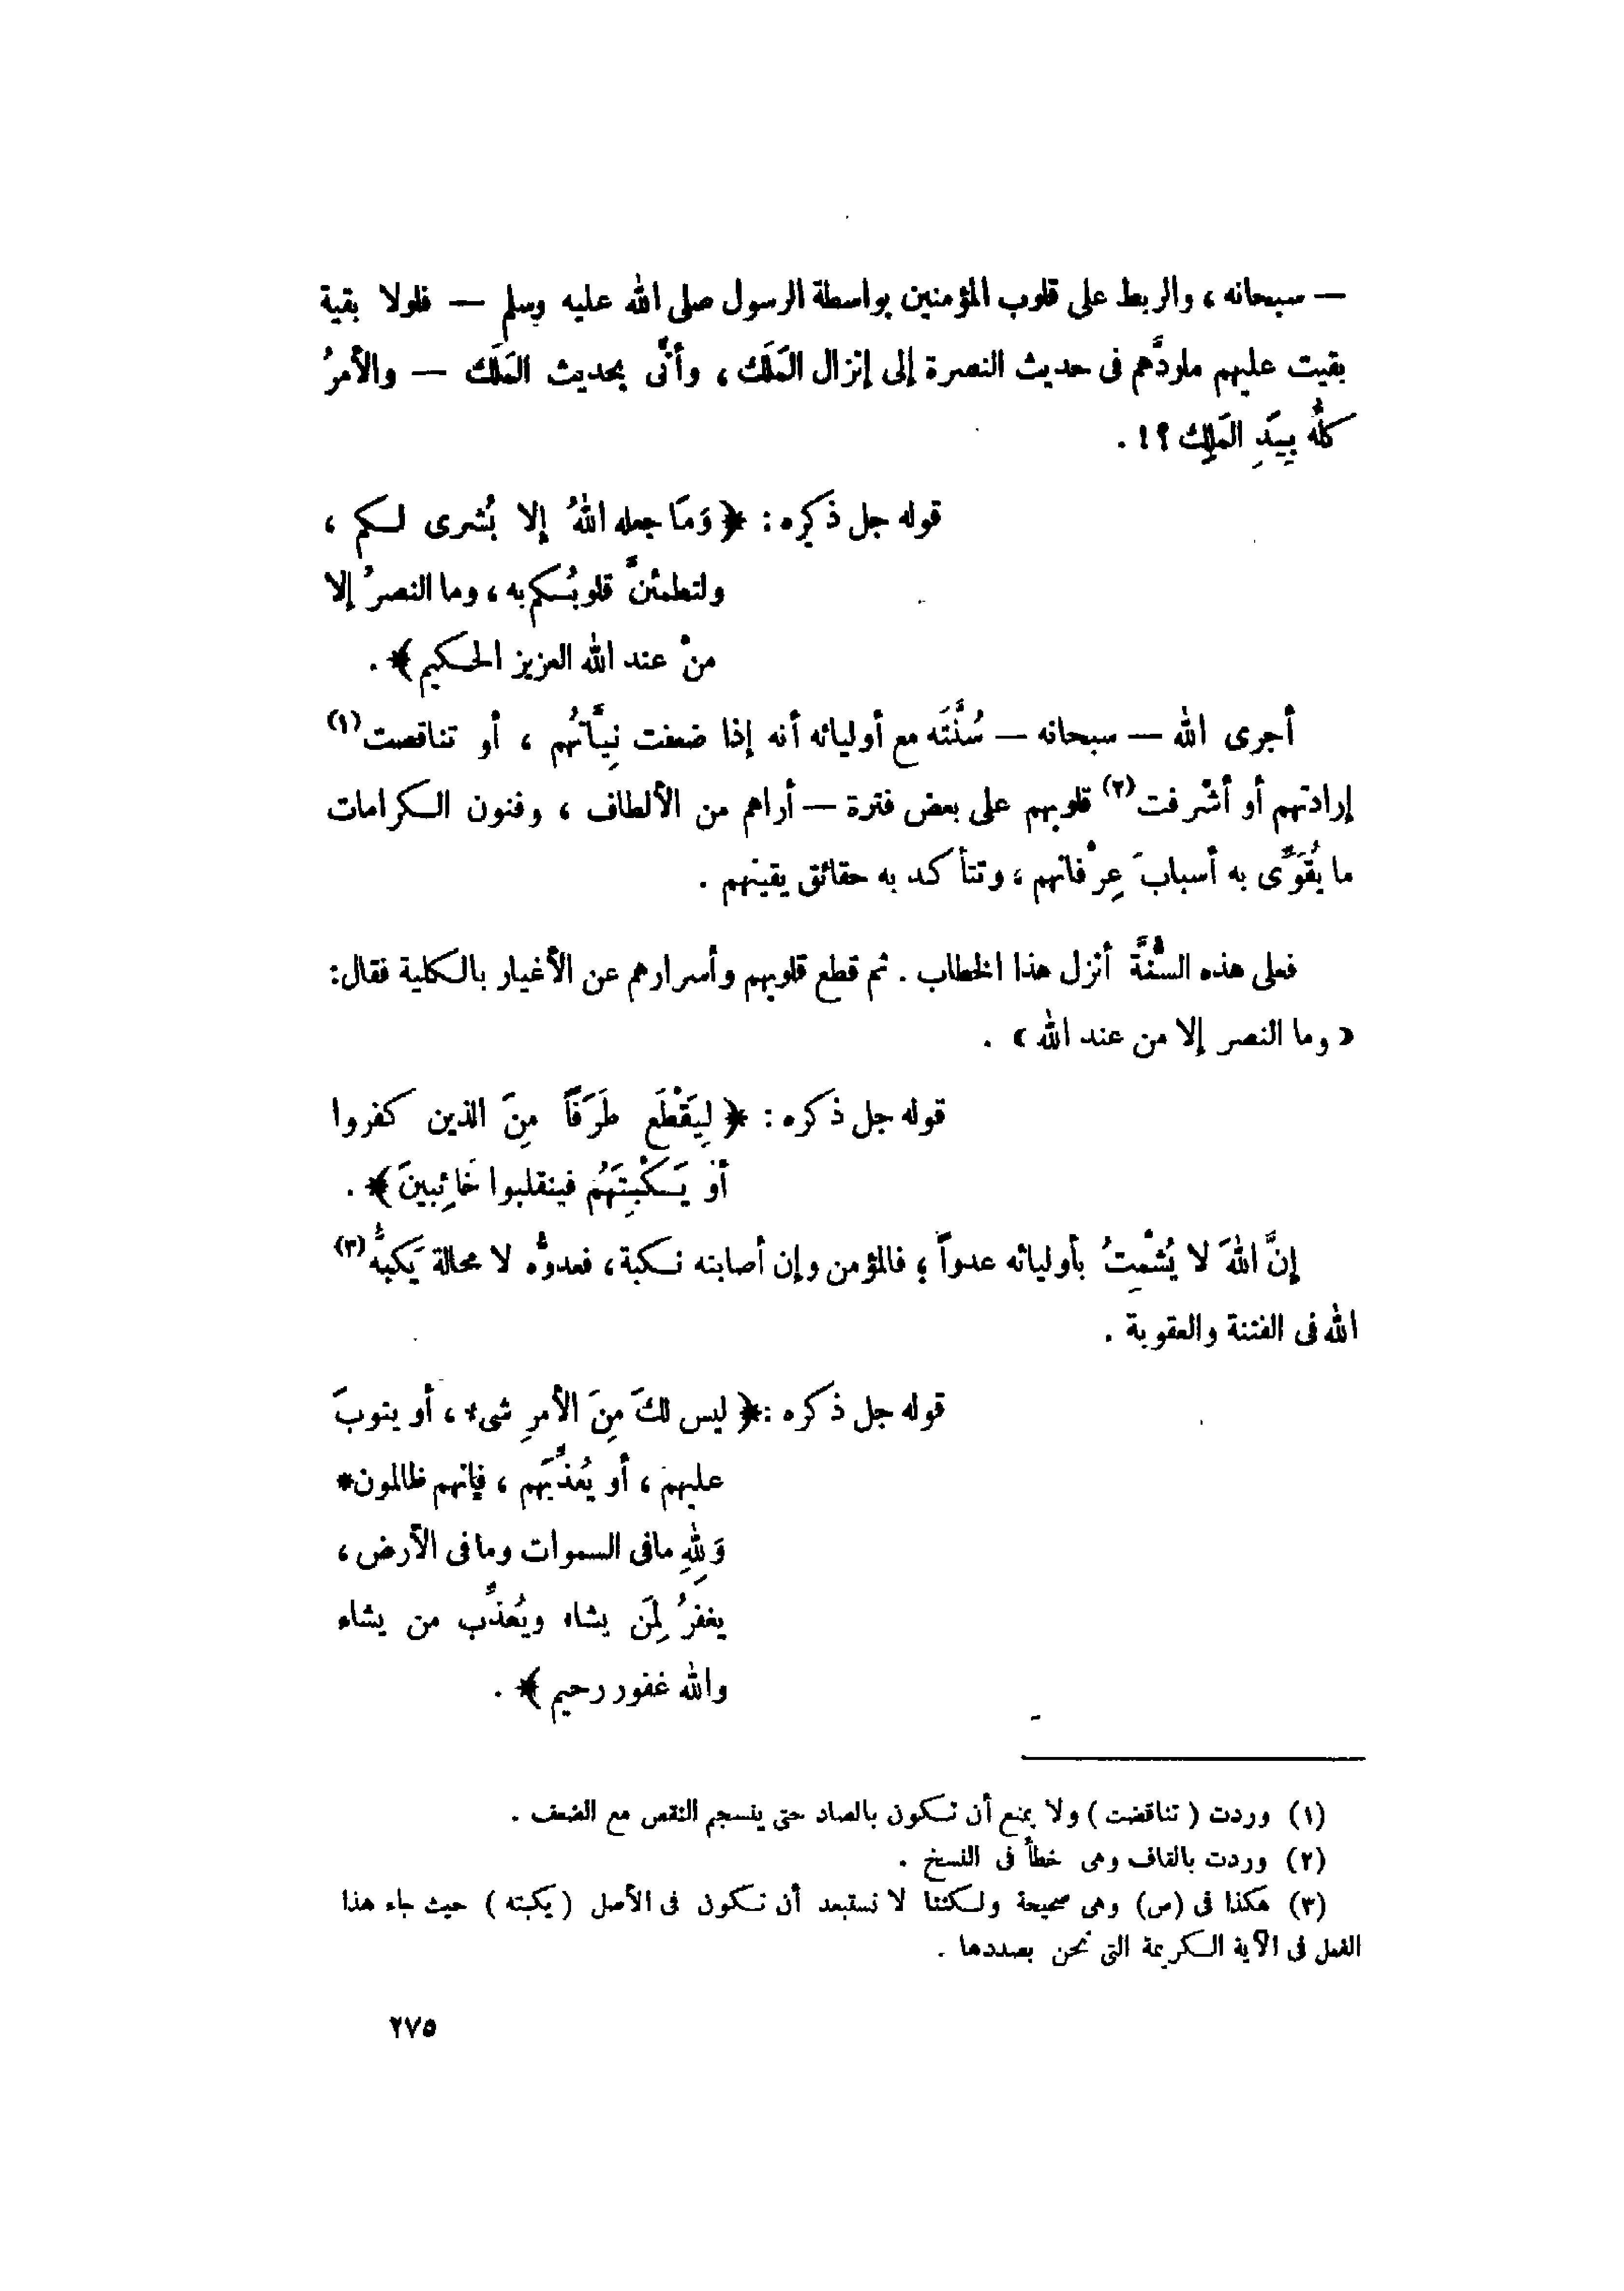 — سبحانه ، والربط على قلوب المؤمنين بواسطة الرسول صلى الله عليه وسلم — فلولا بقية
بقيت عليهم ماردَّهم فى حديث النصرة إلى إنزال المَلَك ، وأنَّى بحديث المَلَك — والأمرُ
كلُّه بِيَدِ المَلِك ؟! .
قوله جل ذكره : ﴿ وَمَا جعله اللهُ إلا بُشرى لكم ،
ولتطمئنَّ قلوبُكم به ، وما النصرُ إلا
منْ عند الله العزيز الحكيم ﴾ .
أجرى الله — سبحانه — سُنَّتَه مع أوليائه أنه إذا ضعفت نِيَّاتُهم ، أو تناقصت(١)
إرادتهم أو أشرفت(٢) قلوبهم على بعض فترة — أراهم من الألطاف ، وفنون الكرامات
ما يُقَوِّى به أسبابَ عِرْفانهم ، وتتأكد به حقائق يقينهم .
فعلى هذه السُّنَّة أنزل هذا الخطاب . ثم قطع قلوبهم وأسرارهم عن الأغيار بالكلية فقال:
« وما النصر إلا من عند الله » .
قوله جل ذكره : ﴿ لِيَقْطَع طَرَفَاً مِنَ الذين كفروا
أوْ يَكْبِتَهُم فينقلبوا خَائِبينَ ﴾ .
إنَّ اللهَ لا يُشْمِتُ بأوليائه عدواً ؛ فالمؤمن وإن أصابته نكبة ، فعدوُّه لا محالة يَكبُّه(٣)
الله فى الفتنة والعقوبة .
قوله جل ذكره : ﴿ ليس لكَ مِنَ الأمرِ شىء ، أو يتوبَ
عليهم ، أو يُعَذِّبَهم ، فإنهم ظالمون *
وَللهِ مافى السموات وما فى الأرض ،
يغفرُ لِمَن يشاء ويُعذِّب من يشاء
والله غفور رحيم ﴾ .
(١) وردت ( تناقضت ) ولا يمنع أن تكون بالصاد حتى ينسجم النقص مع الضعف .
(٢) وردت بالقاف وهى خطأ فى النسخ .
(٣) هكذا فى (ص) وهى صحيحة ولكننا لا نستبعد أن تكون فى الأصل ( يكبته ) حيث جاء هذا
الفعل فى الآية الكريمة التى نحن بصددها .
٢٧٥